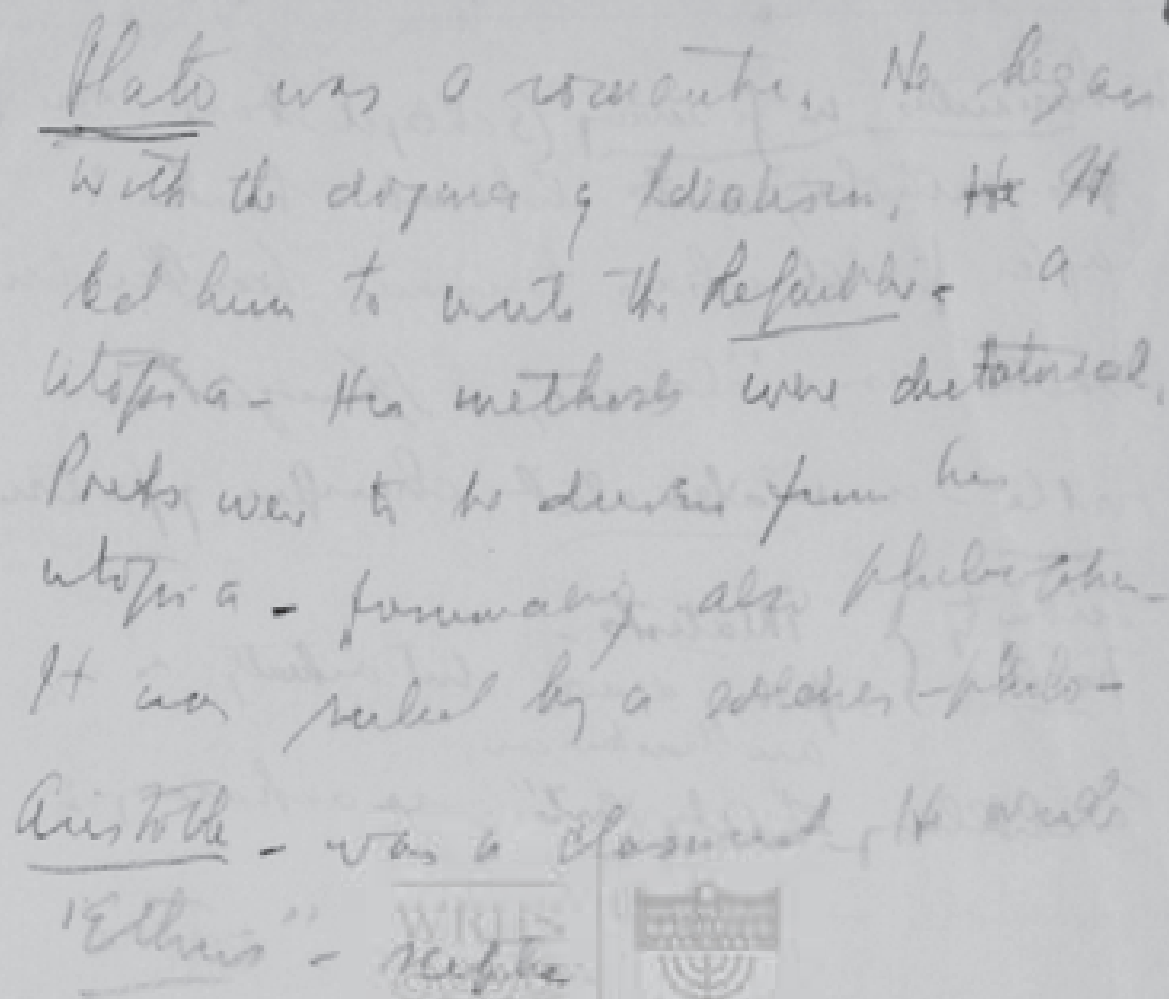 Plato was a romantic. He began
with the dogma of Idealism. He It
led him to write the Republic. a
utopia - His methods were dictatorial.
Poets were to be driven from his
utopia - also
It was ruled by a soldier-philo-
Aristotle - was a classicist, He wrote
"Ethics" - sceptic